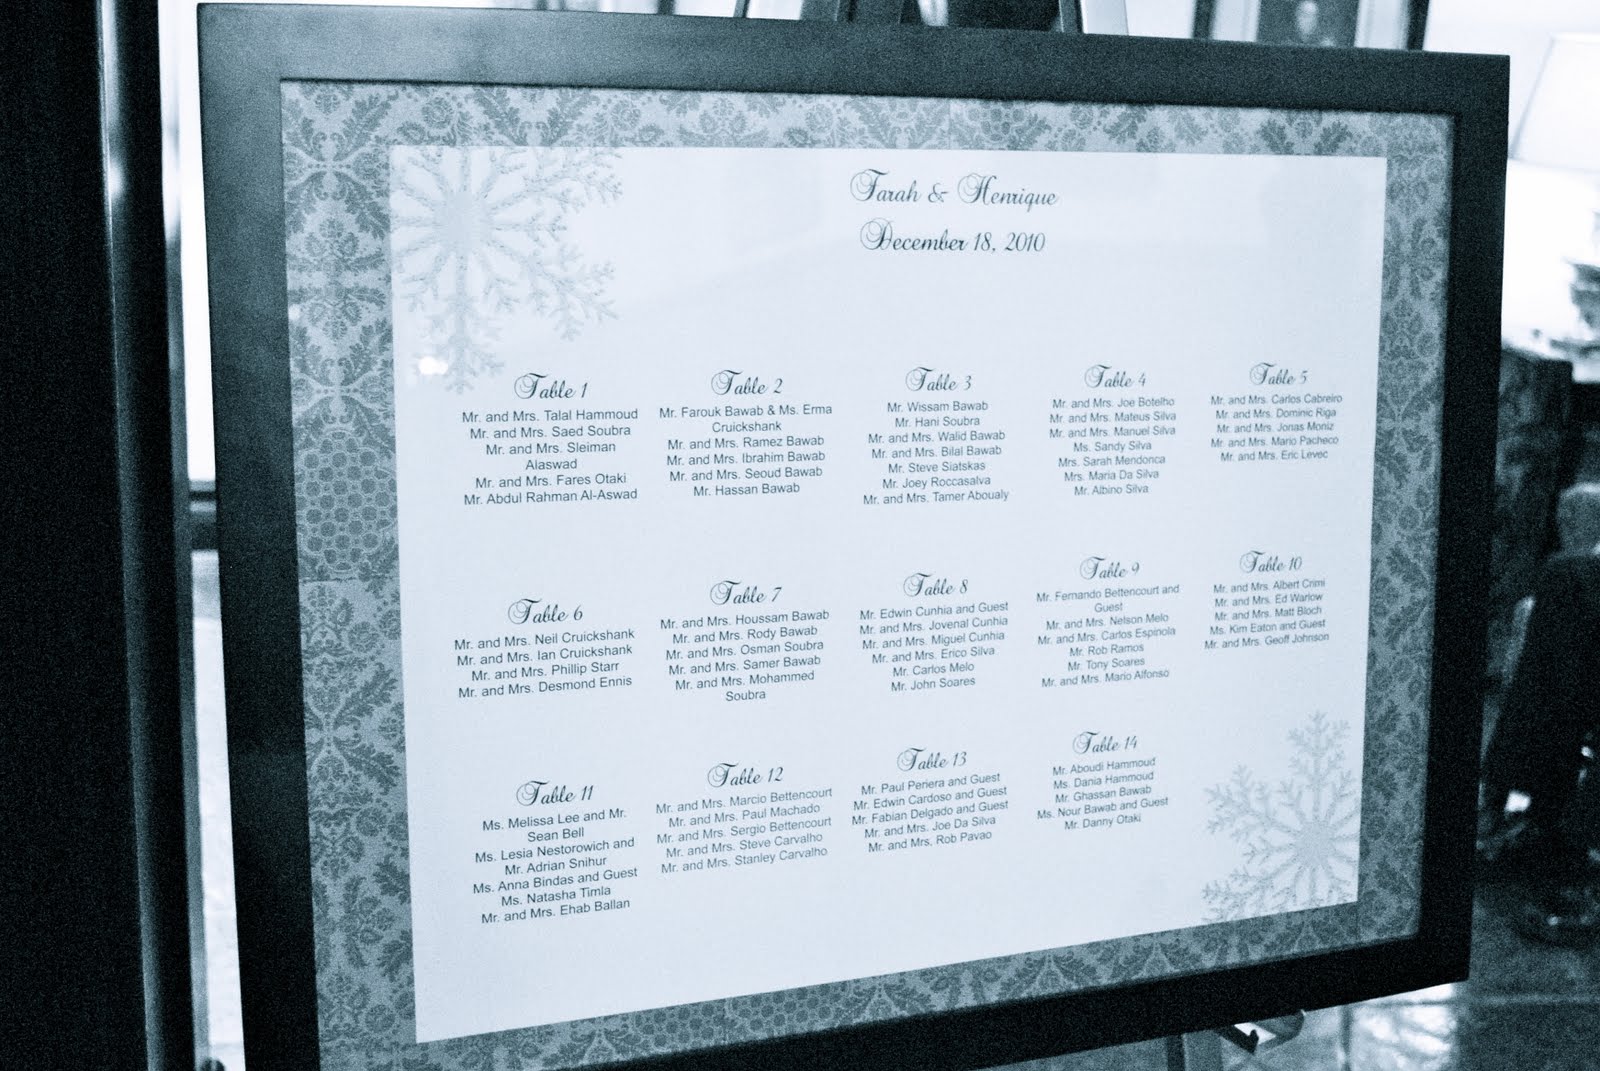 Farah & Henrique
December 18, 2010
Table 1
Mr. and Mrs. Talal Hammoud
Mr. and Mrs. Saed Soubra
Mr. and Mrs. Sleiman
Alaswad
Mr. and Mrs. Fares Otaki
Mr. Abdul Rahman Al-Aswad
Table 2
Mr. Farouk Bawab & Ms. Erma
Cruickshank
Mr. and Mrs. Ramez Bawab
Mr. and Mrs. Ibrahim Bawab
Mr. and Mrs. Seoud Bawab
Mr. Hassan Bawab
Table 3
Mr. Wissam Bawab
Mr. Hani Soubra
Mr. and Mrs. Walid Bawab
Mr. and Mrs. Bilal Bawab
Mr. Steve Siatskas
Mr. Joey Roccasalva
Mr. and Mrs. Tamer Aboualy
Table 4
Mr. and Mrs. Joe Botelho
Mr. and Mrs. Mateus Silva
Mr. and Mrs. Manuel Silva
Ms. Sandy Silva
Mrs. Sarah Mendonca
Mrs. Maria Da Silva
Mr. Albino Silva
Table 5
Mr. and Mrs. Carlos Cabreiro
Mr. and Mrs. Dominic Riga
Mr. and Mrs. Jonas Moniz
Mr. and Mrs. Mario Pacheco
Mr. and Mrs. Eric Levec
Table 6
Mr. and Mrs. Neil Cruickshank
Mr. and Mrs. Ian Cruickshank
Mr. and Mrs. Phillip Starr
Mr. and Mrs. Desmond Ennis
Table 7
Mr. and Mrs. Houssam Bawab
Mr. and Mrs. Rody Bawab
Mr. and Mrs. Osman Soubra
Mr. and Mrs. Samer Bawab
Mr. and Mrs. Mohammed
Soubra
Table 8
Mr. Edwin Cunhia and Guest
Mr. and Mrs. Jovenal Cunhia
Mr. and Mrs. Miguel Cunhia
Mr. and Mrs. Erico Silva
Mr. Carlos Melo
Mr. John Soares
Table 9
Mr. Fernando Bettencourt and
Guest
Mr. and Mrs. Nelson Melo
Mr. and Mrs. Carlos Espinola
Mr. Rob Ramos
Mr. Tony Soares
Mr. and Mrs. Mario Alfonso
Table 10
Mr. and Mrs. Albert Crimi
Mr. and Mrs. Ed Warlow
Mr. and Mrs. Matt Bloch
Ms. Kim Eaton and Guest
Mr. and Mrs. Geoff Johnson
Table 11
Ms. Melissa Lee and Mr.
Sean Bell
Ms. Lesia Nestorowich and
Mr. Adrian Snihur
Ms. Anna Bindas and Guest
Ms. Natasha Timla
Mr. and Mrs. Ehab Ballan
Table 12
Mr. and Mrs. Marcio Bettencourt
Mr. and Mrs. Paul Machado
Mr. and Mrs. Sergio Bettencourt
Mr. and Mrs. Steve Carvalho
Mr. and Mrs. Stanley Carvalho
Table 13
Mr. Paul Periera and Guest
Mr. Edwin Cardoso and Guest
Mr. Fabian Delgado and Guest
Mr. and Mrs. Joe Da Silva
Mr. and Mrs. Rob Pavao
Table 14
Mr. Aboudi Hammoud
Ms. Dania Hammoud
Mr. Ghassan Bawab
Ms. Nour Bawab and Guest
Mr. Danny Otaki